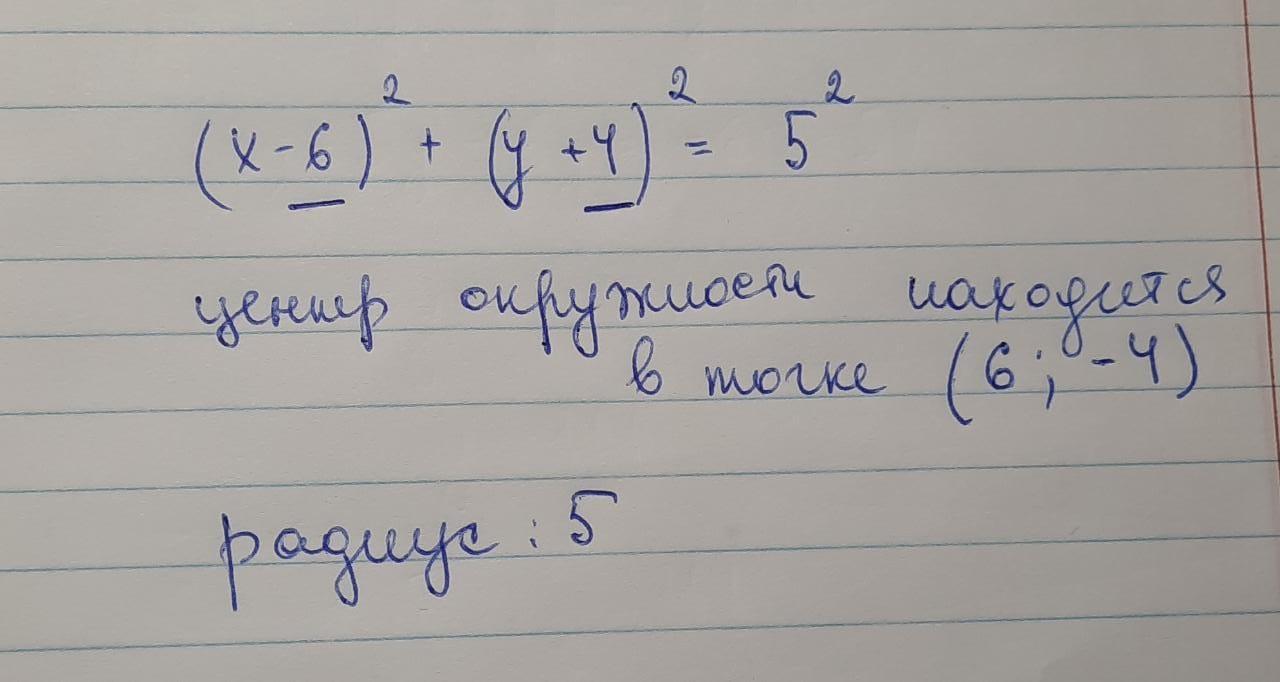 (x-6)² + (y+4)² = 5²
центр окружности находится
в точке (6; -4)
радиус: 5